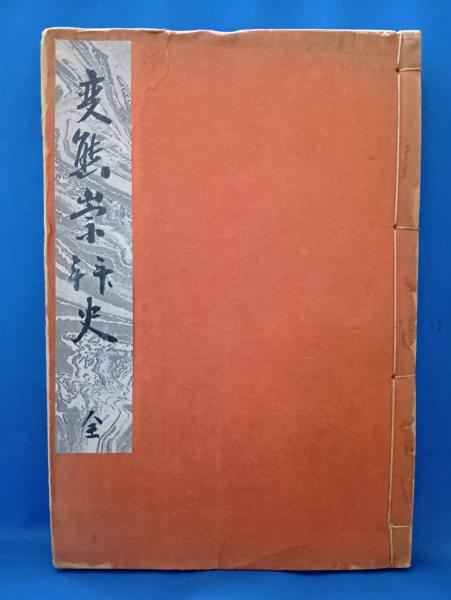 変態崇拝史 全